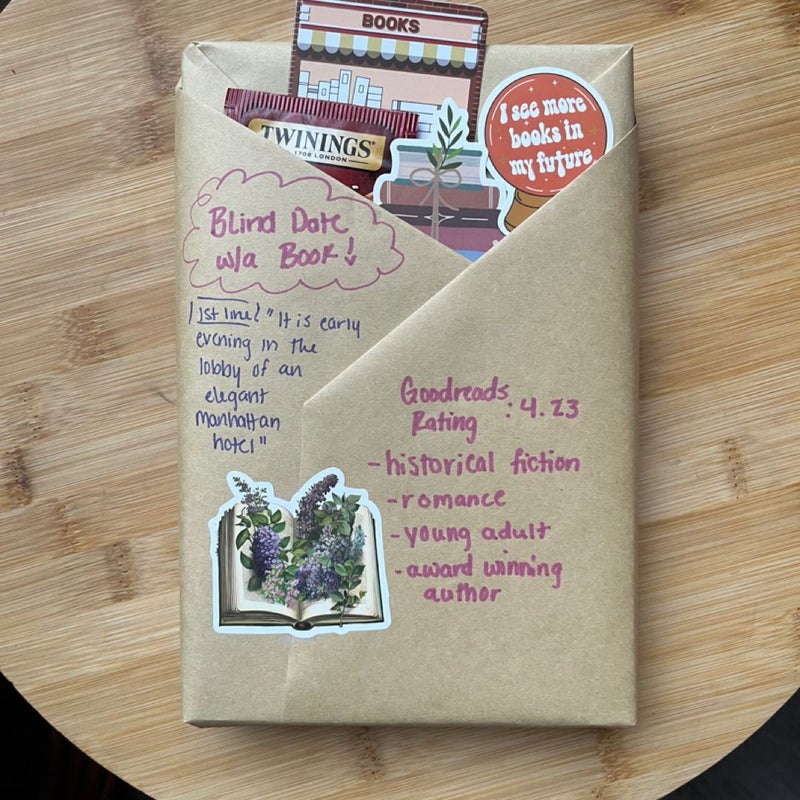 BOOKS
I see more
books in
my future
TWININGS®
1706 LONDON
Blind Date
w/a Book!
1st line! "It is early
evening in the
lobby of an
elegant
Manhattan
hotel"
Goodreads
Rating : 4.23
-historical fiction
-romance
-young adult
-award winning
author